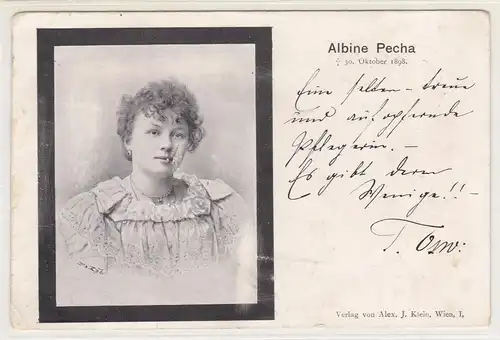 Albine Pecha
† 30. Oktober 1898.
Eine selten - treue
und aufopfernde
Pflegerin. -
Es gibt deren
Wenige!! -
Verlag von Alex. J. Klein, Wien, I,